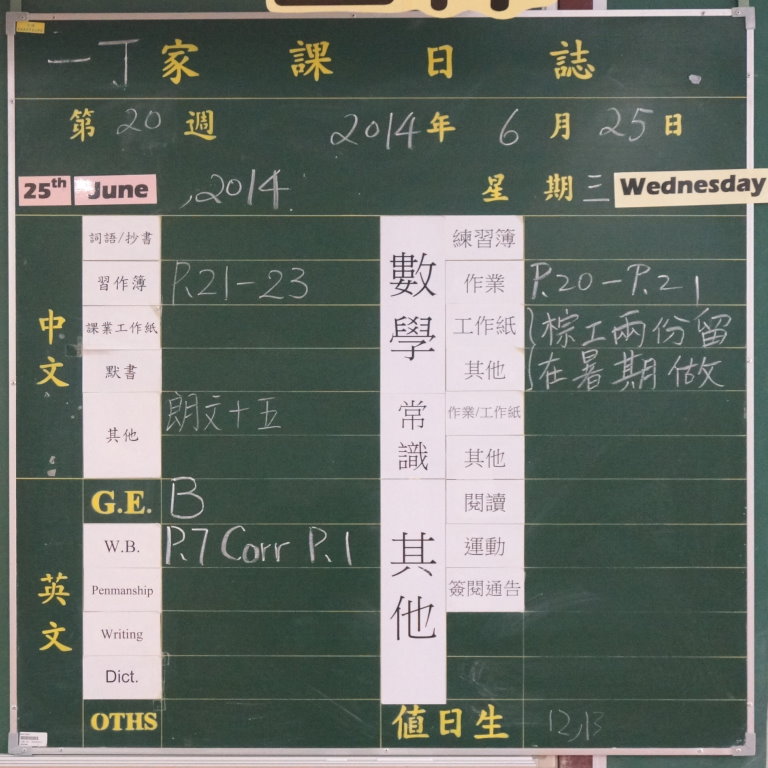 一丁家課日誌
第20週 2014年6月25日
25th June, 2014 星期三 Wednesday
中文
詞語/抄書
習作簿 P.21-23
課業工作紙
默書
其他 朗文十五
英文
G.E. B
W.B. P.7 Corr P.1
Penmanship
Writing
Dict.
OTHS
數學
練習簿
作業 P.20-P.21
工作紙 棕工兩份留
其他 在暑期做
常識
作業/工作紙
其他
其他
閱讀
運動
簽閱通告
值日生 12,13